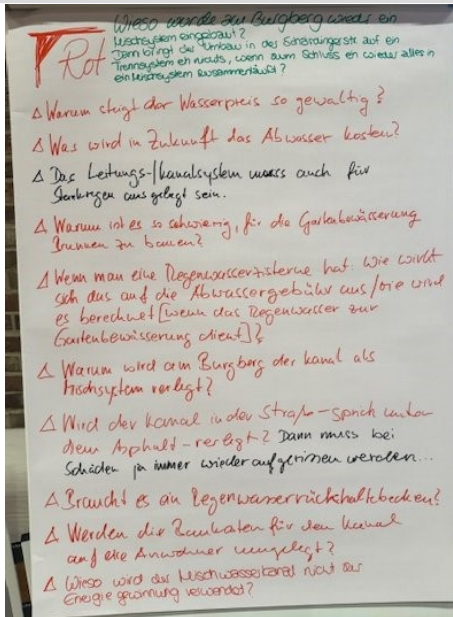 Wieso wurde am Burgberg wieder ein
Mischsystem eingebaut?
Dann bringt der Umbau in der Schärdingerstr auf ein
Trennsystem eh nichts, wenn zum Schluss eh wieder alles in
ein Mischsystem zusammenläuft?
Rot
Δ Warum steigt der Wasserpreis so gewaltig?
Δ Was wird in Zukunft das Abwasser kosten?
Δ Das Leitungs-/kanalsystem muss auch für
Starkregen ausgelegt sein.
Δ Warum ist es so schwierig, für die Gartenbewässerung
Brunnen zu bauen?
Δ Wenn man eine Regenwasserzisterne hat: Wie wirkt
sich das auf die Abwassergebühr aus/wie wird
es berechnet [wenn das Regenwasser zur
Gartenbewässerung dient]?
Δ Warum wird am Burgberg der Kanal als
Mischsystem verlegt?
Δ Wird der Kanal in der Straße - sprich unter
dem Asphalt - verlegt? Dann muss bei
Schäden ja immer wieder aufgerissen werden...
Δ Braucht es ein Regenwasserrückhaltebecken?
Δ Werden die Baukosten für den Kanal
auf die Anwohner umgelegt?
Δ Wieso wird der Mischwasserkanal nicht zur
Energiegewinnung verwendet?